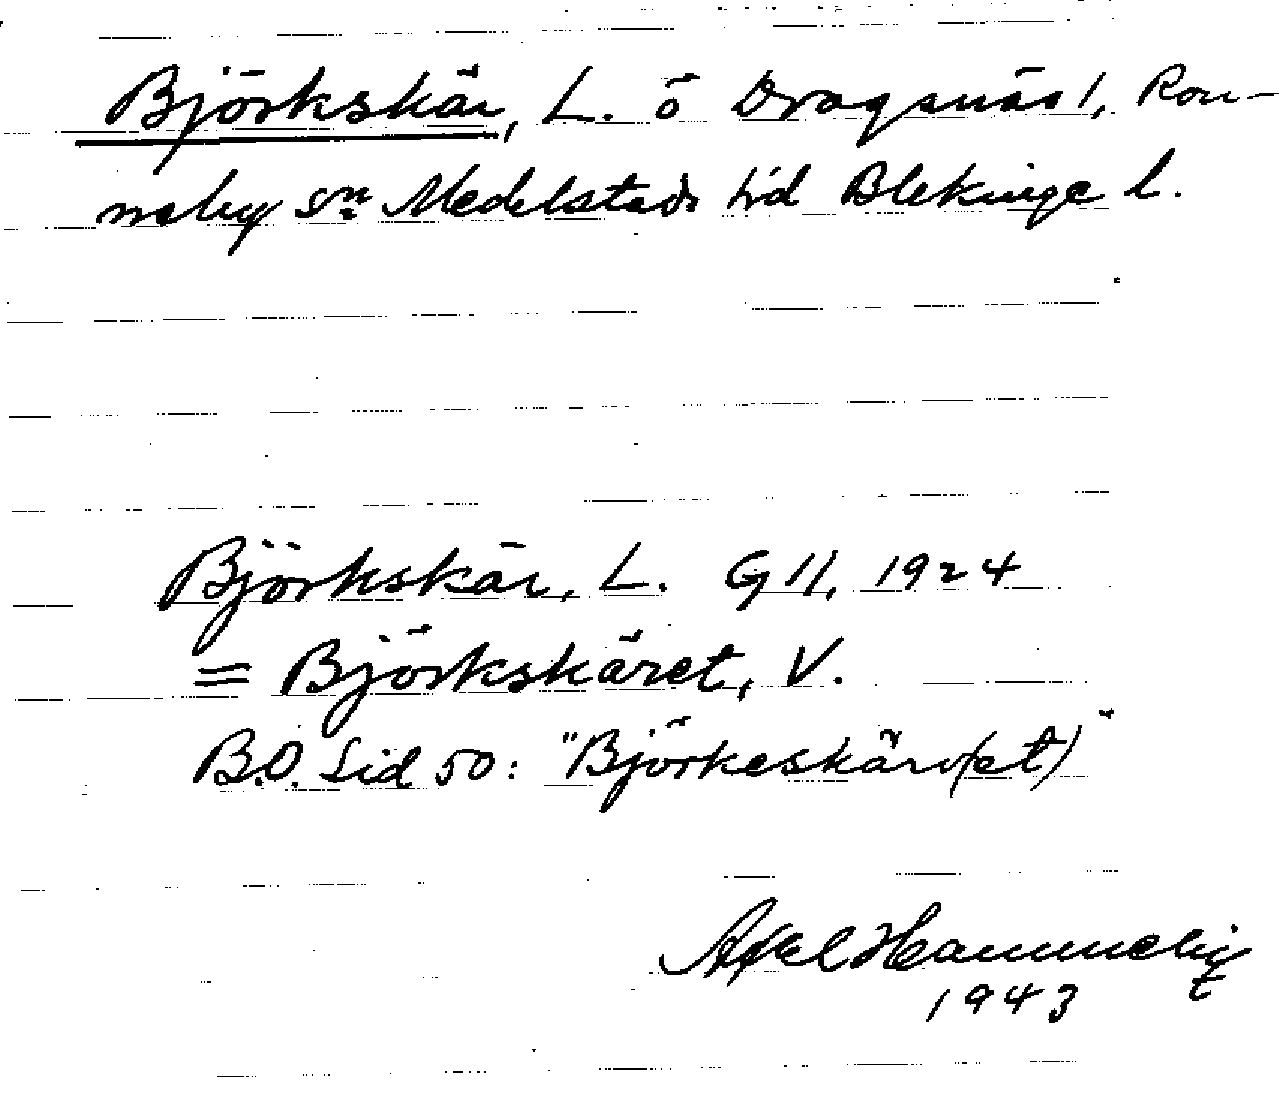 Björkskär, L. ö Dragsnäs 1, Ron-
neby sn Medelstads hd Blekinge l.
Björkskär, L. G 11, 1924
= Björkskäret, V.
B.O. Sid 50: "Björkeskär(et)"
Axel
1943